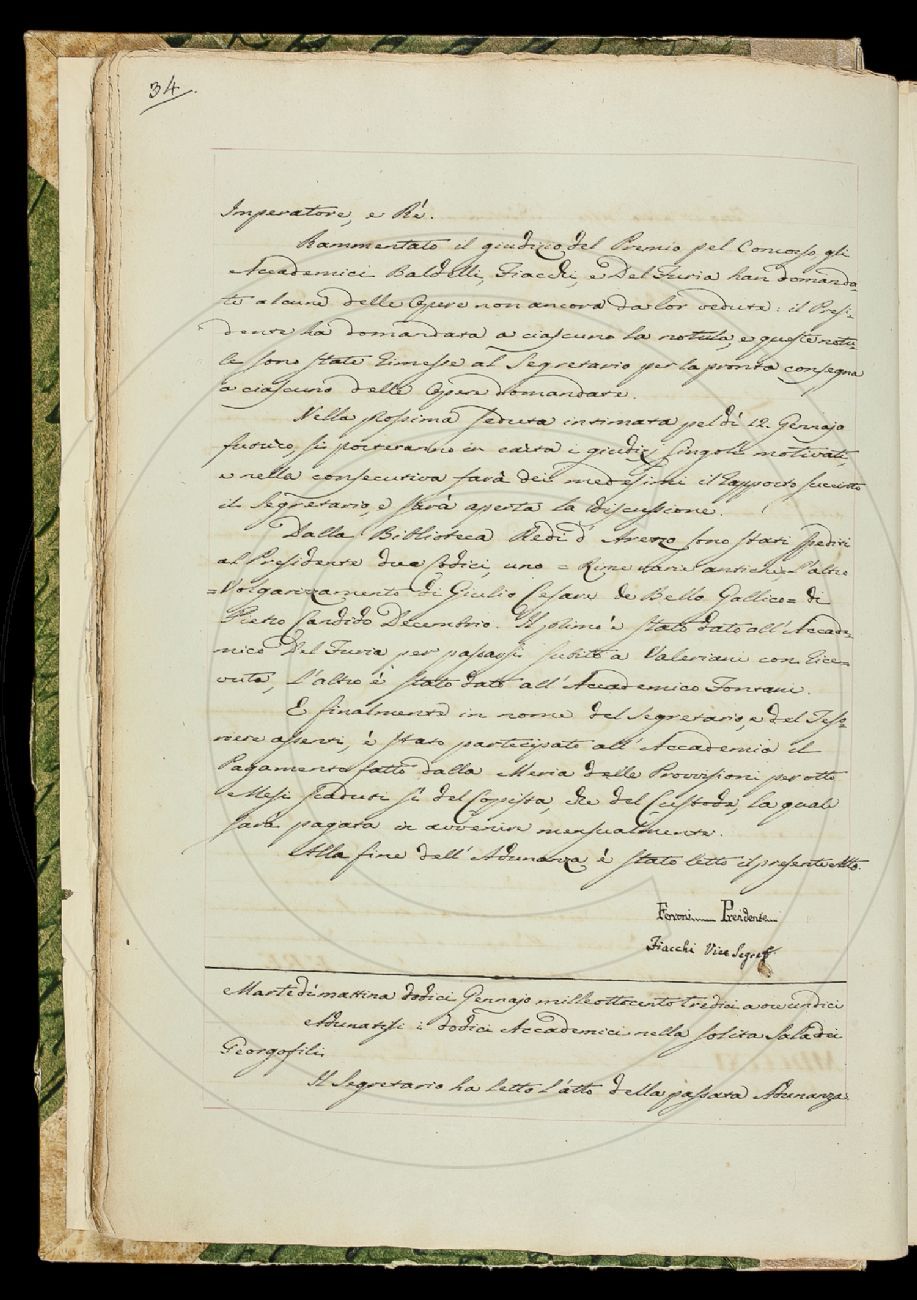 34.
Imperatore, e Rè.
Rammentato il giudizio del Premio pel Concorso, gli
Accademici Baldelli, Fiacchi, e Del Furia han domanda=
te alcune delle Opere non ancora da lor vedute: il Presi=
dente ha domandata a ciascuno la notula, e queste notu=
le sono state rimesse al Segretario per la pronta consegna
a ciascuno delle Opere domandate.
Nella prossima seduta intimata pel dì 12. Gennajo
futuro, si porteranno in carta i giudizj singoli motivati,
e nella consecutiva farà dei medesimi il rapporto succinto
il Segretario, e sarà aperta la discussione.
Dalla Biblioteca Redi d'Arezzo sono stati spediti
al Presidente due Codici, uno = Rime varie antiche, l'altro
= Volgarizzamento di Giulio Cesare de Bello Gallico = di
Pietro Candido Decembrio. Il primo è stato dato all'Accade=
mico Del Furia per passarsi subito a Valeriani con rice=
vuta, l'altro è stato dato all'Accademico Fontani.
E finalmente in nome del Segretario, e del Teso=
riere assenti, è stato partecipato all'Accademia il
Pagamento fatto dalla Meria delle Provvisioni per otto
Mesi scaduti sì del Copista, che del Custode, la quale
sarà pagata in avvenire mensualmente.
Alla fine dell'Adunanza è stato letto il presente Atto.
Ferroni Presidente
Fiacchi Vice Segret.
Martedì mattina dodici Gennajo mille ottocento tredici a ore undici
Adunatisi i dodici Accademici nella solita Sala dei
Georgofili
Il Segretario ha letto l'atto della passata Adunanza